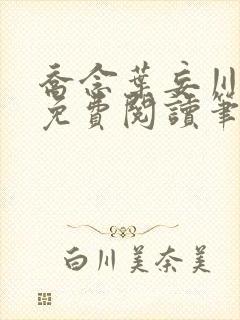 喬念葉妄川
免費閱讀筆
白川美奈美